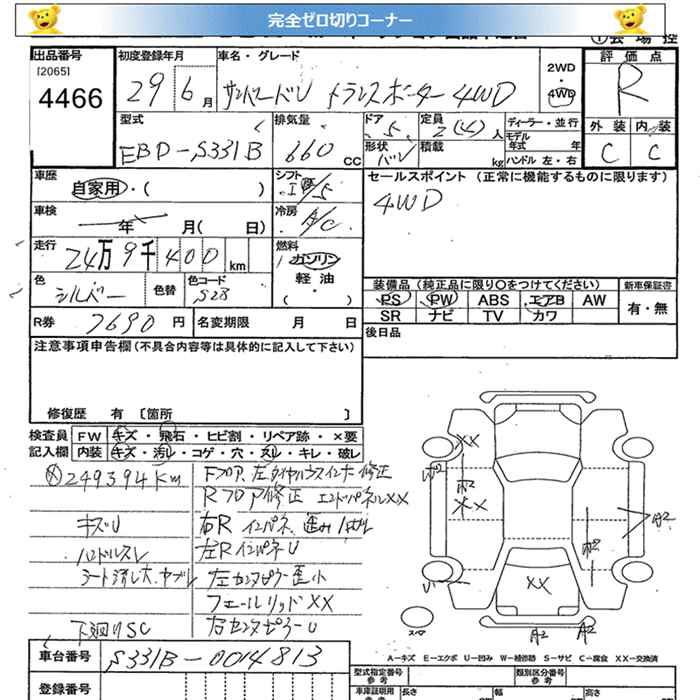 完全ゼロ切りコーナー
出品番号
[2065]
4466
初度登録年月
29年 6月
車名・グレード
サンバーバン トランスポーター 4WD
2WD
・
4WD
評価点
R
外装 内装
C C
型式
EBD-S331B
排気量
660 CC
ドア 5
形状 バン
定員 2(4)人
積載 kg
ディーラー・並行
モデル
年式 年
ハンドル 左・右
車歴
自家用・( )
シフト
冷房
A/C
セールスポイント (正常に機能するものに限ります)
4WD
車検
年 月( 日)
走行
24万9千400km
燃料
ガソリン
軽油
( )
色
シルバー
色替
色コード
S28
装備品 (純正品に限り〇をつけてください)
新車保証書
PS PW ABS エアB AW
有・無
SR ナビ TV カワ
R券 7690円
名変期限 月 日
後日品
注意事項申告欄(不具合内容等は具体的に記入して下さい)
修復歴 有 〔箇所 〕
検査員
記入欄
FW キズ・飛石・ヒビ割・リペア跡・×要
内装 キズ・汚レ・コゲ・穴・スレ・キレ・破レ
249394km
Fフロア、左タイヤハウスインナー修正
Rフロア修正 エンドパネルXX
キズU
ハンドルスレ
左RインパネU
左センターピラー歪小
XX
下廻りSC
右センターピラーU
XX
XX
A2
A2
A2
A2
A-キズ E-エクボ U-凹み W-補修跡 S-サビ C-腐食 XX-交換済
車台番号
S331B-0014813
登録番号
型式指定番号
参考
類別区分番号
参考
車庫証明用
参考
長さ
幅
高さ